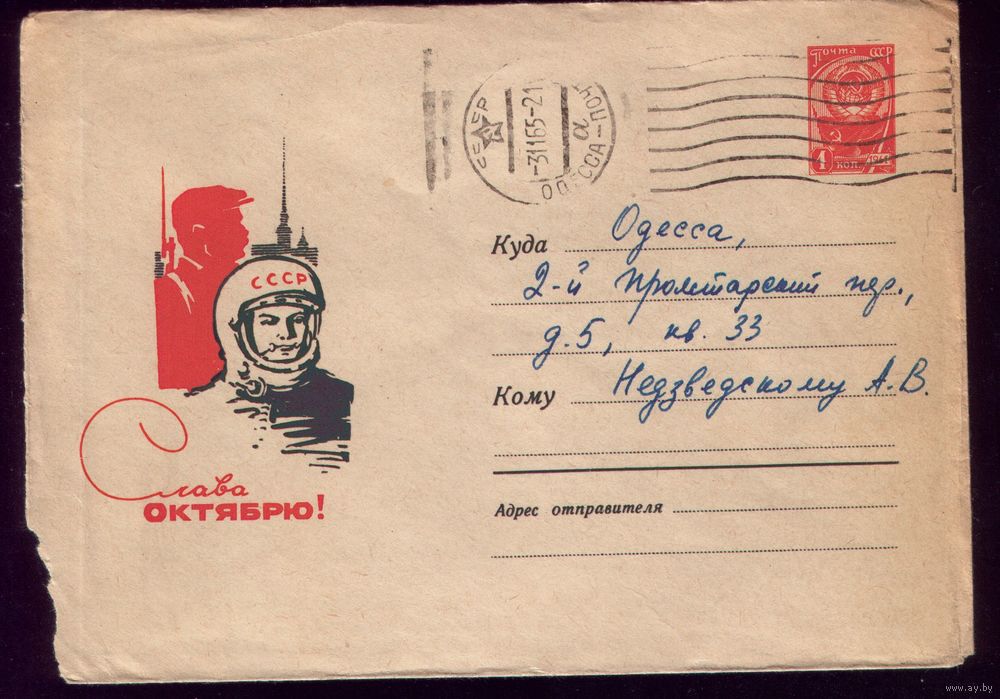 Почта СССР
4 коп. 1961
СССР
-31165-21
ОДЕССА-ПОЧ
а
Куда Одесса,
2-й Пролетарский пер.,
д.5, кв. 33
Кому Недзведскому А.В.
СССР
Слава
ОКТЯБРЮ!
Адрес отправителя
www.ay.by